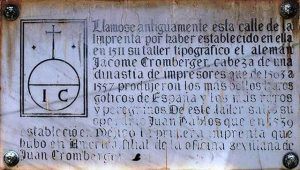 Llamóse antiguamente esta calle de la
imprenta por haber establecido en ella
en 1511 su taller tipográfico el alemán
Jacome Cromberger, cabeza de una
dinastía de impresores que de 1503 a
1557 produjeron los más bellos libros
góticos de España y los más raros
y peregrinos. De este taller salió su
operario Juan Pablos que en 1539
estableció en México la primera imprenta que
hubo en América filial de la oficina sevillana de
Juan Cromberger
I C